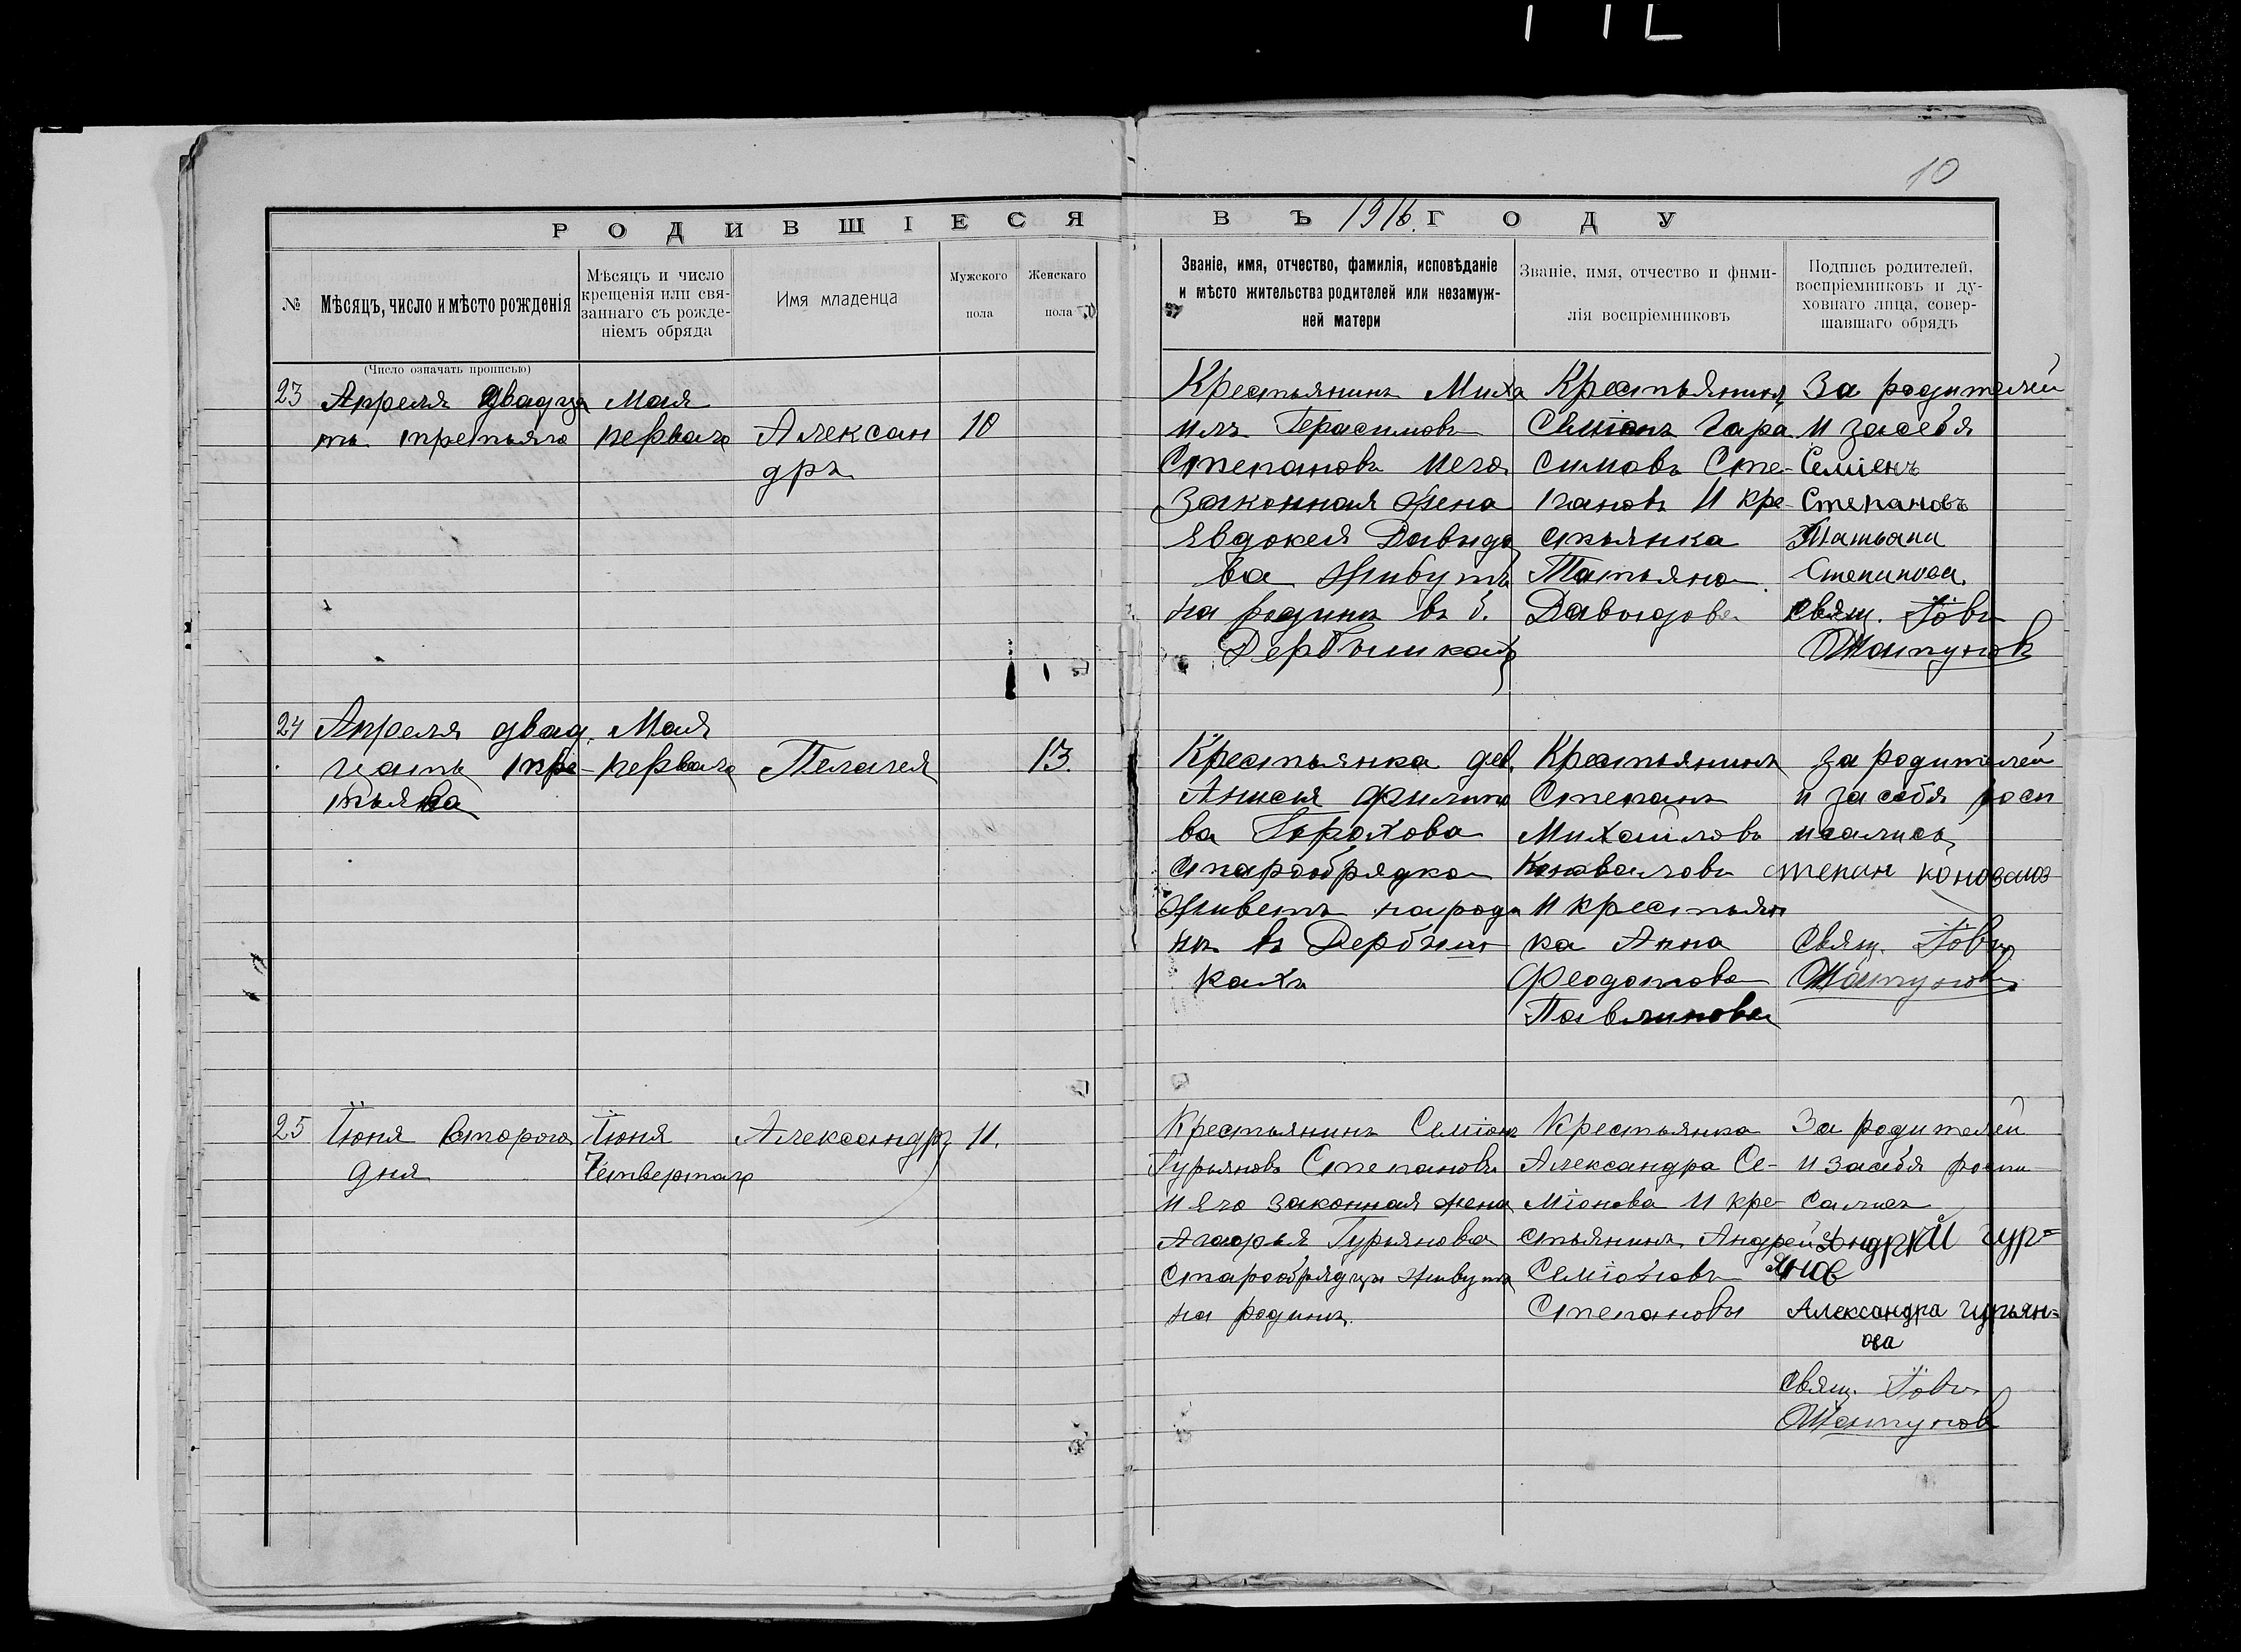 10
РОДИВШІЕСЯ
ВЪ 1916. ГОДУ
№
Мѣсяцъ, число и мѣсто рожденія
Мѣсяцъ и число
крещенія или свя-
заннаго съ рожде-
ніемъ обряда
Имя младенца
Мужского
пола
Женскаго
пола
Званіе, имя, отчество, фамилія, исповѣданіе
и мѣсто жительства родителей или незамуж-
ней матери
Званіе, имя, отчество и фими-
лія воспріемниковъ
Подпись родителей,
воспріемниковъ и ду-
ховнаго лица, совер-
шавшаго обрядъ
(Число означать прописью)
23
Апреля двадца
ть третьяго
Мая
перваго
Алексан
дръ
10
Крестьянинъ Миха
илъ Герасимовъ
Степановъ и его
Законная жена
Евдокея Давидо
ва живутъ
на родинѣ въ д.
Дербышкахъ
Крестьянинъ
Семіонъ Гара
симовъ Сте-
пановъ и кре-
стьянка
Татьяна
Давыдова
За родителей
и за себя
Семіенъ
Степановъ
Татьяна
Степанова.
Свящ. Іовъ
24
Апреля двад.
цать тре-
тьява
Мая
перваго
Пелагея
13.
Крестьянка дев.
Анисия Филипо
ва Горохова
старообрядка
живетъ народи
нѣ въ Дербыш
кахъ
Крестьянинъ
Степанъ
Михайловъ
Коноваловъ
и крестьян
ка Анна
Феодотова
Павлинова
За родителей
и за себя росп
исались
степан коновалов
Свящ. Іовъ
25
Іюня второго
дня
Іюня
Четвертаго
Александръ
11.
Крестьянинъ Семіонъ
Гурьяновъ Степановъ
и его законная жена
Агафья Гурьянова
Старообрядцы живутъ
на родинѣ.
Крестьянка
Александра Се-
міонова и кре-
стьянинъ Андрей
Семіоновъ
Степановы
За родителей
и засебя роспи
сались
Андрей гур=
янов
Александра гурьян=
ова
Свящ. Іовъ